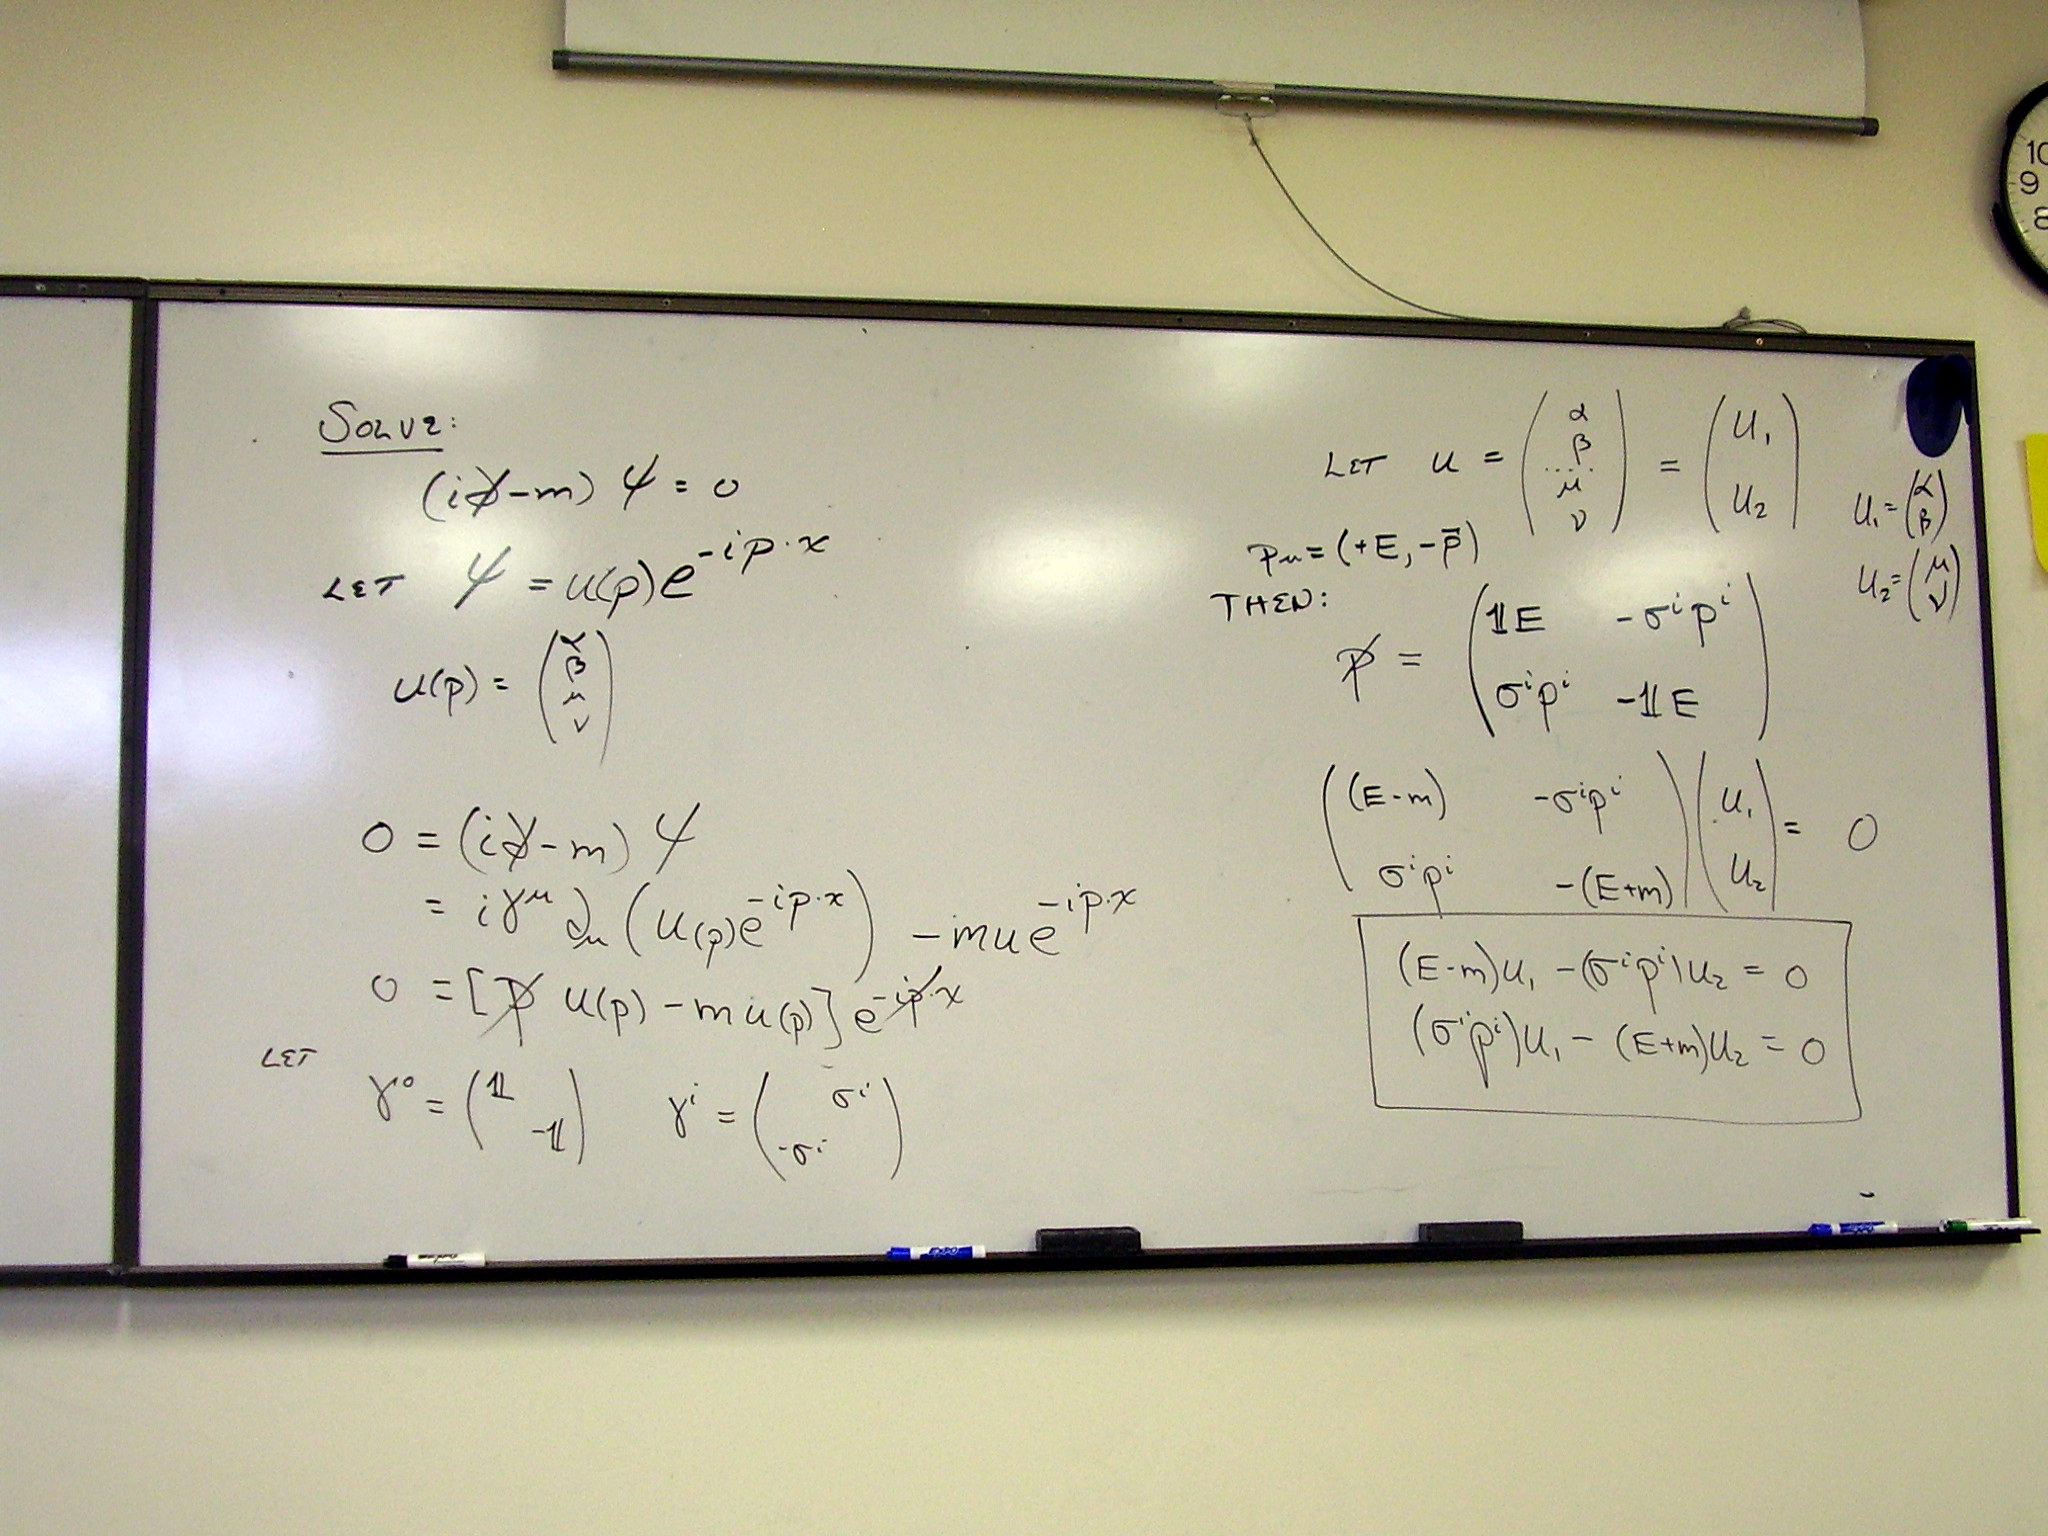 Solve:
(i∂̸ - m) ψ = 0
LET ψ = u(p) e^{-ip·x}
u(p) = (α β μ ν)
0 = (i∂̸ - m) ψ
= iγ^μ ∂_μ (u(p) e^{-ip·x}) - m u e^{-ip·x}
0 = [p̸ u(p) - m u(p)] e^{-ip·x}
LET
γ^0 = (𝟙 -𝟙) γ^i = (σ^i -σ^i)
LET u = (α β ..... μ ν) = (u_1 u_2)
u_1 = (α β)
u_2 = (μ ν)
p_μ = (+E, -p̄)
THEN:
p̸ = (𝟙E -σ^i p^i
σ^i p^i -𝟙E)
((E-m) -σ^i p^i
σ^i p^i -(E+m)) (u_1 u_2) = 0
(E-m)u_1 - (σ^i p^i)u_2 = 0
(σ^i p^i)u_1 - (E+m)u_2 = 0
10
9
8
EXPO